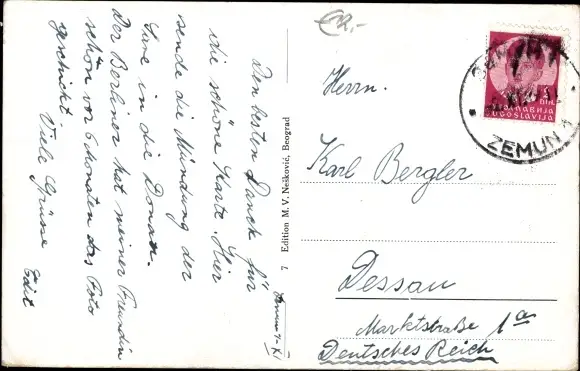 Den besten Dank für
die schöne Karte. Hier
sende die Mündung der
Save in die Donau.
Der Berliner hat meiner Freundin
schon vor 6 Monaten das Foto
geschickt. Viele Grüsse
Edit
7 Edition M. V. Nešković, Beograd
ЗЕМУН
ZEMUN 1
JUGOSLAVIJA
Herrn
Karl Bergler
Dessau
Marktstraße 1a
Deutsches Reich